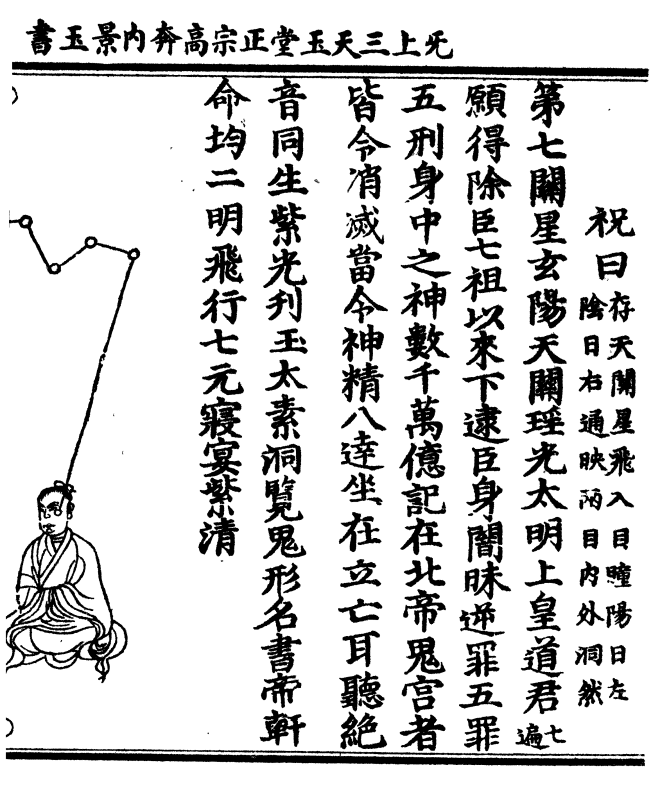 无上三天玉堂正宗高奔內景玉書
祝曰存天關星飛入目瞳陽日左
陰日右通映兩目內外洞然
第七關星玄陽天關瑤光太明上皇道君七遍
願得除臣七祖以來下逮臣身闇昧逆罪五罪
五刑身中之神數千萬億記在北帝鬼宮者
皆令消滅當令神精八達坐在立亡耳聽絕
音同生紫光刋玉太素洞覽鬼形名書帝軒
命均二明飛行七元寢宴紫清